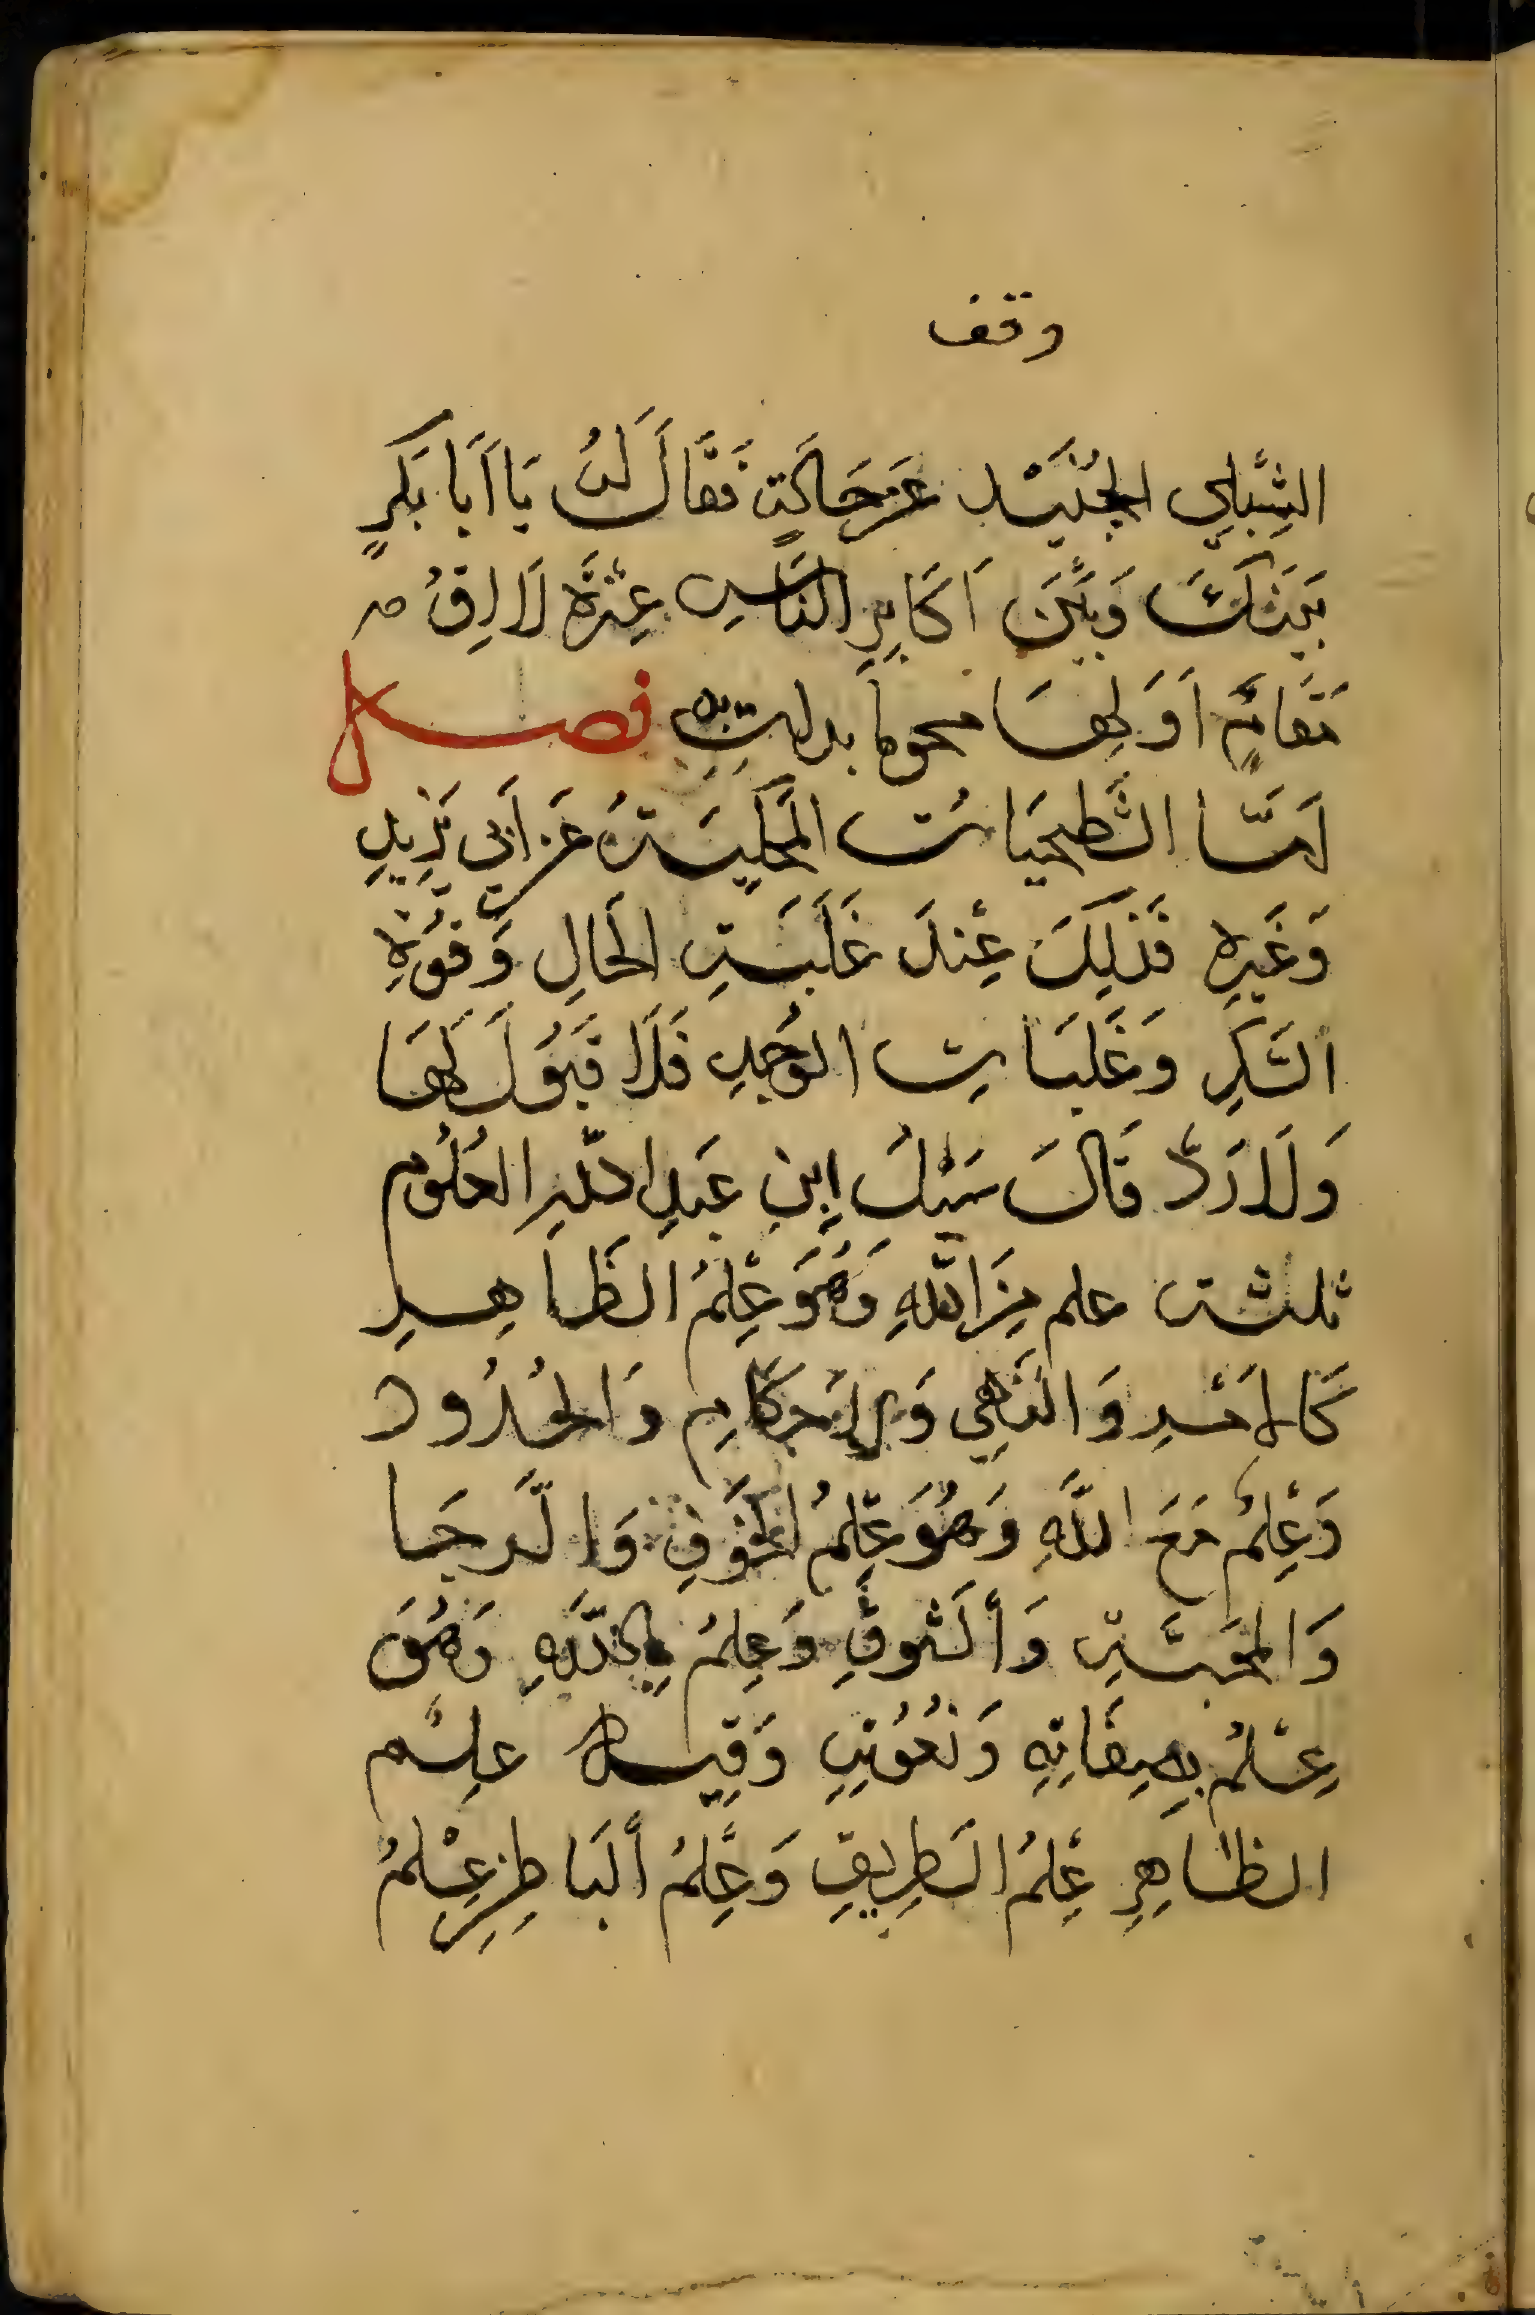 وقف
الشِبلي الجُنَيْد عَن حَالَةٍ فَقَالَ لَهُ يَا اَبَا بَكرٍ
بَينَكَ وَبَيْنَ اَكَابِرِ النَّاسِ عشرة لَا
مَقَامٍ اَوَّلهَا محو ما بدات به فصل
اَمَّا الشَّطحيَات المَحكِيَّةُ عَن اَبي يَزِيدِ
وَغَيرِه فَذلِكَ عِندَ غَلَبَةِ الحَالِ وَقوَّةِ
السَّكرِ وَغَلبَاتِ الوَجدِ فَلَا قَبُوَلَ لَهَا
وَلَا رَدَّ قَالَ سَهْلُ اِبنِ عَبدِ اللّهِ العُلُومُ
ثلثة علم مِنَ اللّهِ وَهُوَ عِلمُ الظَاهِرِ
كَالاَمْرِ وَالنَّهيِ وَالاَحكَامِ وَالحُدُود
وَعِلمٌ مَعَ اللّهِ وَهُوَ عِلمُ الخَوْفِ وَالرَّجَا
وَالمَحَبَّةِ وَالشَوقِ وَعِلمٌ بِاللّهِ وَهُوَ
عِلْمٌ بِصِفَاتِهِ وَنُعُوتِهِ وَقِيلَ عِلم
الظَاهِرِ عِلمُ الطَرِيقِ وَعِلمُ البَاطِنِ عِلْمُ